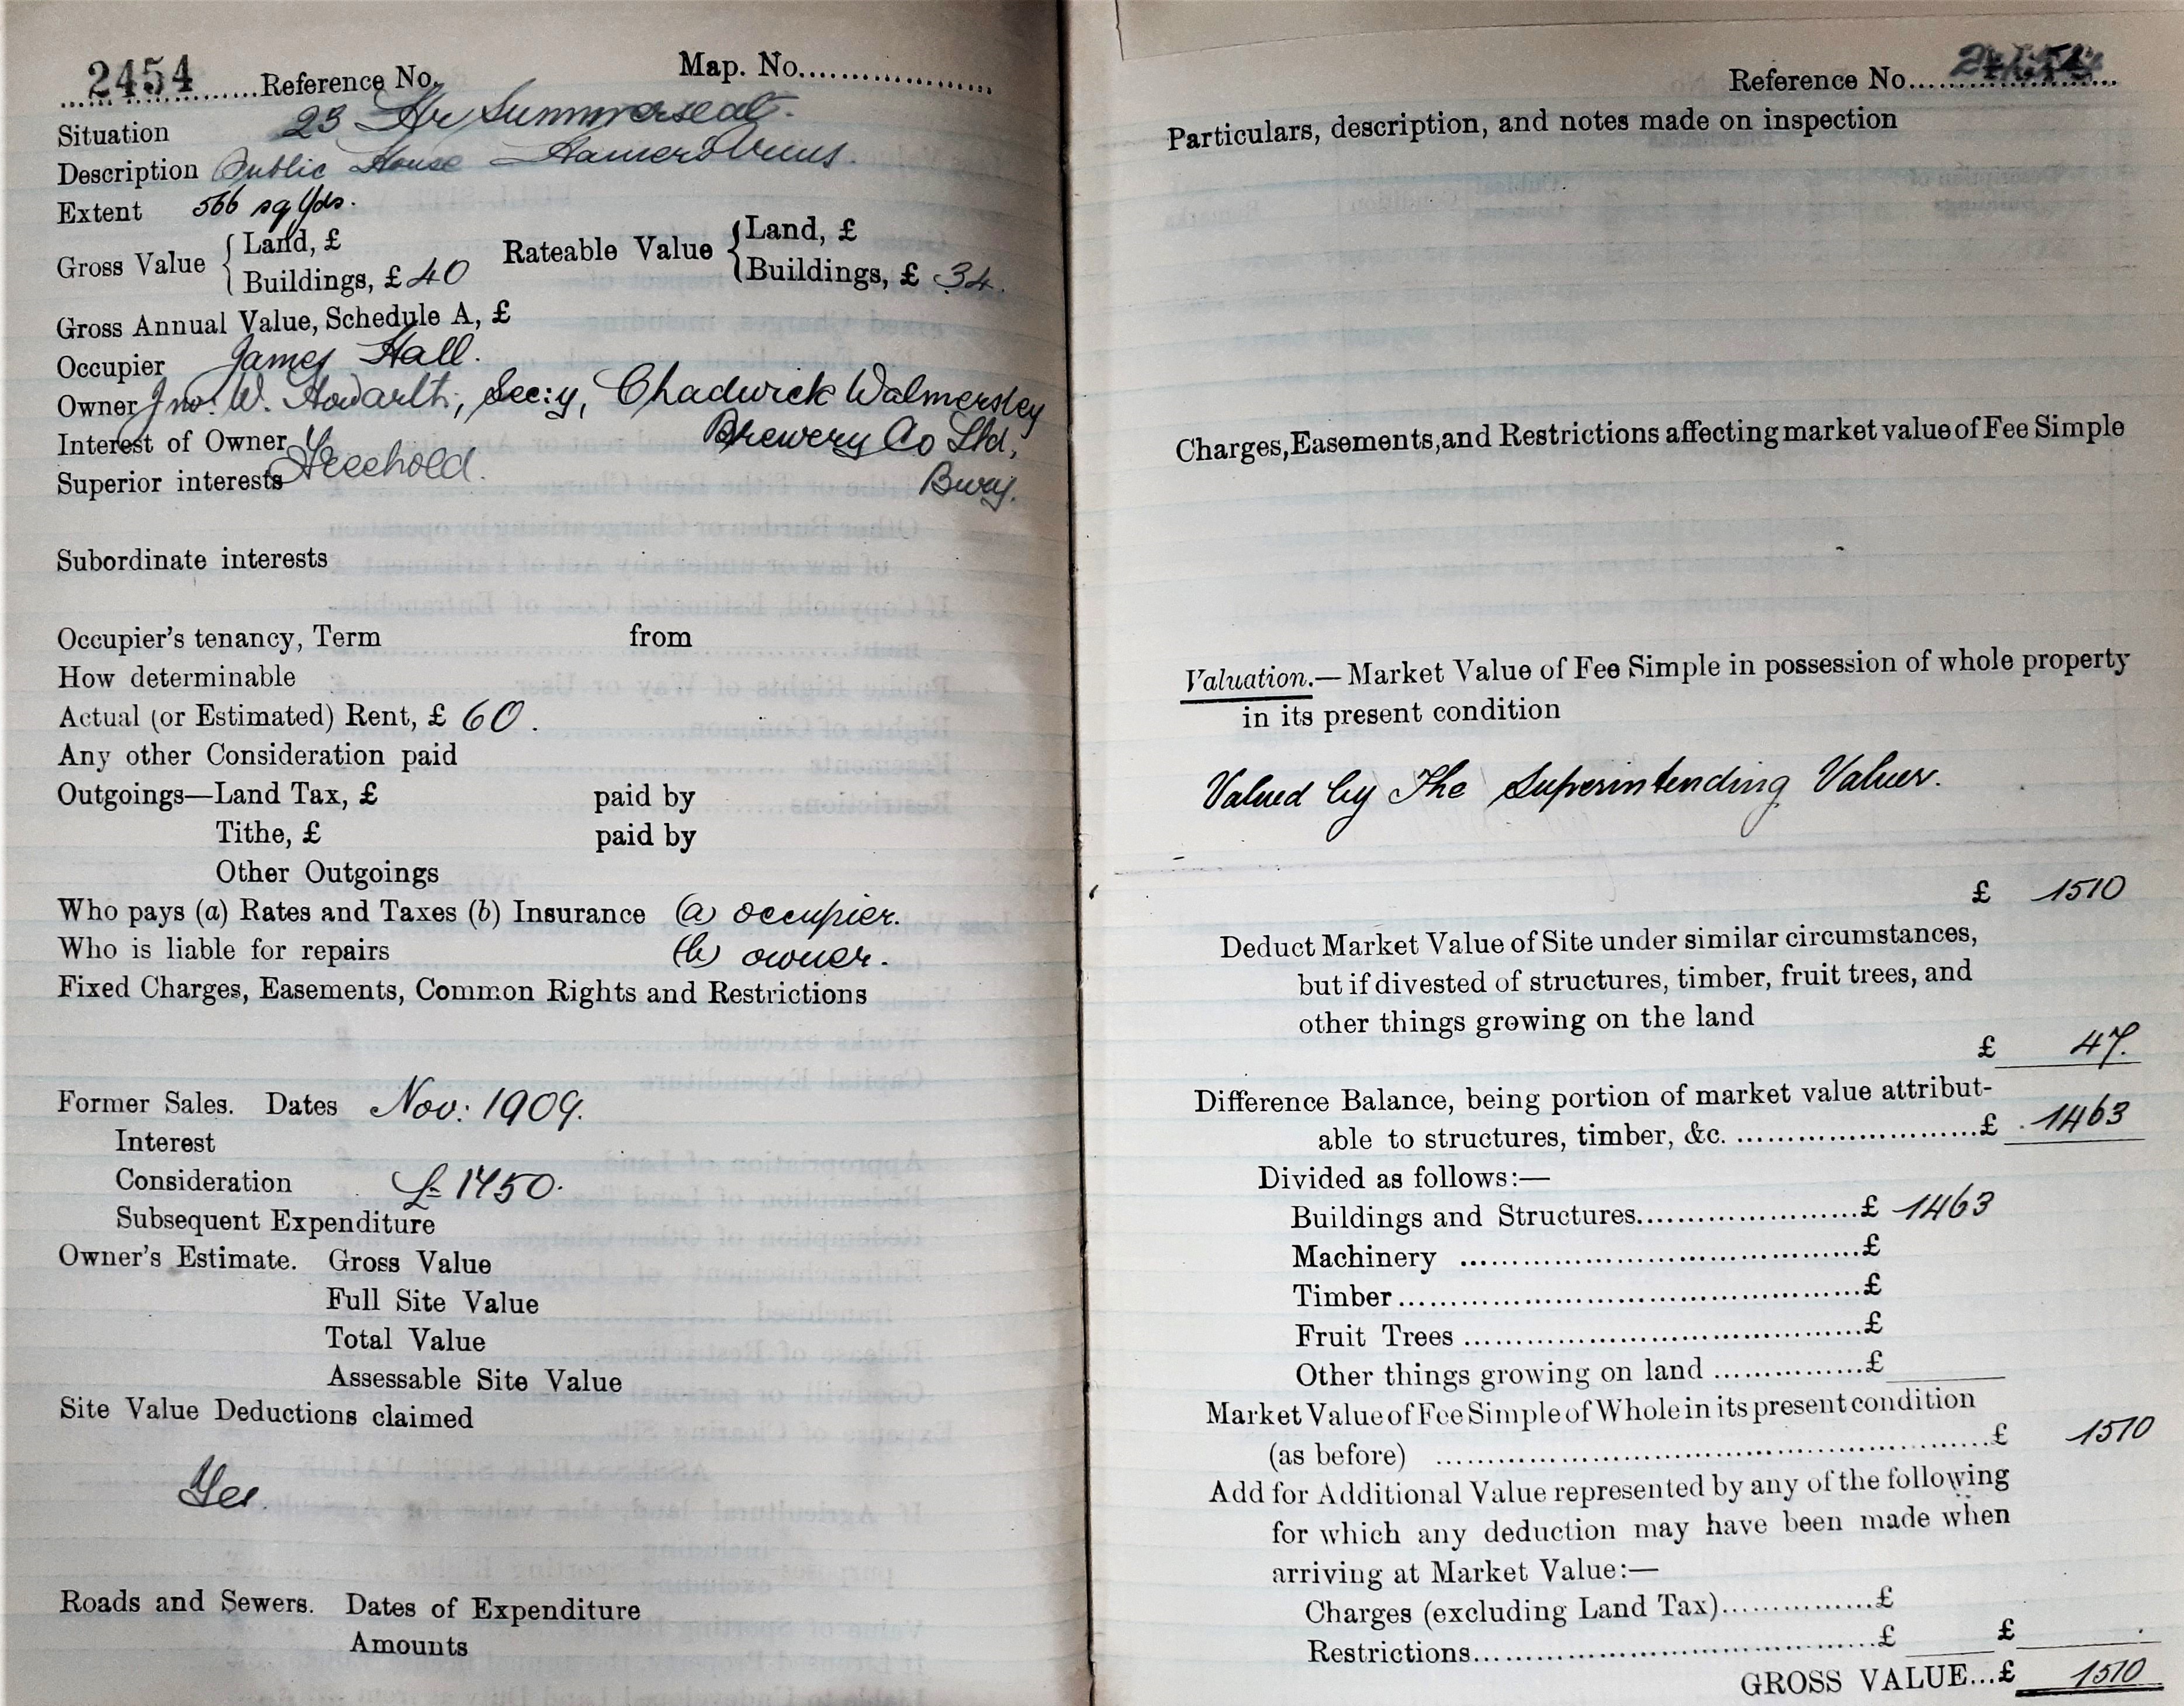 2454 Reference No. Map. No.
Situation 23 Hr Summerseat.
Description Public House Hamers Arms.
Extent 566 sq Yds.
Gross Value { Land, £ Rateable Value { Land, £
Buildings, £ 40 Buildings, £ 34.
Gross Annual Value, Schedule A, £
Occupier James Hall.
Owner Jno. W. Howarth, Sec:y, Chadwick Walmersley
Interest of Owner Freehold. Brewery Co Ltd,
Superior interests Bury.
Subordinate interests
Occupier's tenancy, Term from
How determinable
Actual (or Estimated) Rent, £ 60.
Any other Consideration paid
Outgoings—Land Tax, £ paid by
Tithe, £ paid by
Other Outgoings
Who pays (a) Rates and Taxes (b) Insurance (a) occupier.
Who is liable for repairs (b) owner.
Fixed Charges, Easements, Common Rights and Restrictions
Former Sales. Dates Nov: 1909.
Interest
Consideration £1450.
Subsequent Expenditure
Owner's Estimate. Gross Value
Full Site Value
Total Value
Assessable Site Value
Site Value Deductions claimed
Yes.
Roads and Sewers. Dates of Expenditure
Amounts
Reference No.
Particulars, description, and notes made on inspection
Charges, Easements, and Restrictions affecting market value of Fee Simple
Valuation.—Market Value of Fee Simple in possession of whole property
in its present condition
Valued by The Superintending Valuer.
£ 1510
Deduct Market Value of Site under similar circumstances,
but if divested of structures, timber, fruit trees, and
other things growing on the land
£ 47.
Difference Balance, being portion of market value attribut-
able to structures, timber, &c. £ 1463
Divided as follows:—
Buildings and Structures £ 1463
Machinery £
Timber £
Fruit Trees £
Other things growing on land £
Market Value of Fee Simple of Whole in its present condition
(as before) £ 1510
Add for Additional Value represented by any of the following
for which any deduction may have been made when
arriving at Market Value:—
Charges (excluding Land Tax) £
Restrictions £ £
GROSS VALUE...£ 1510